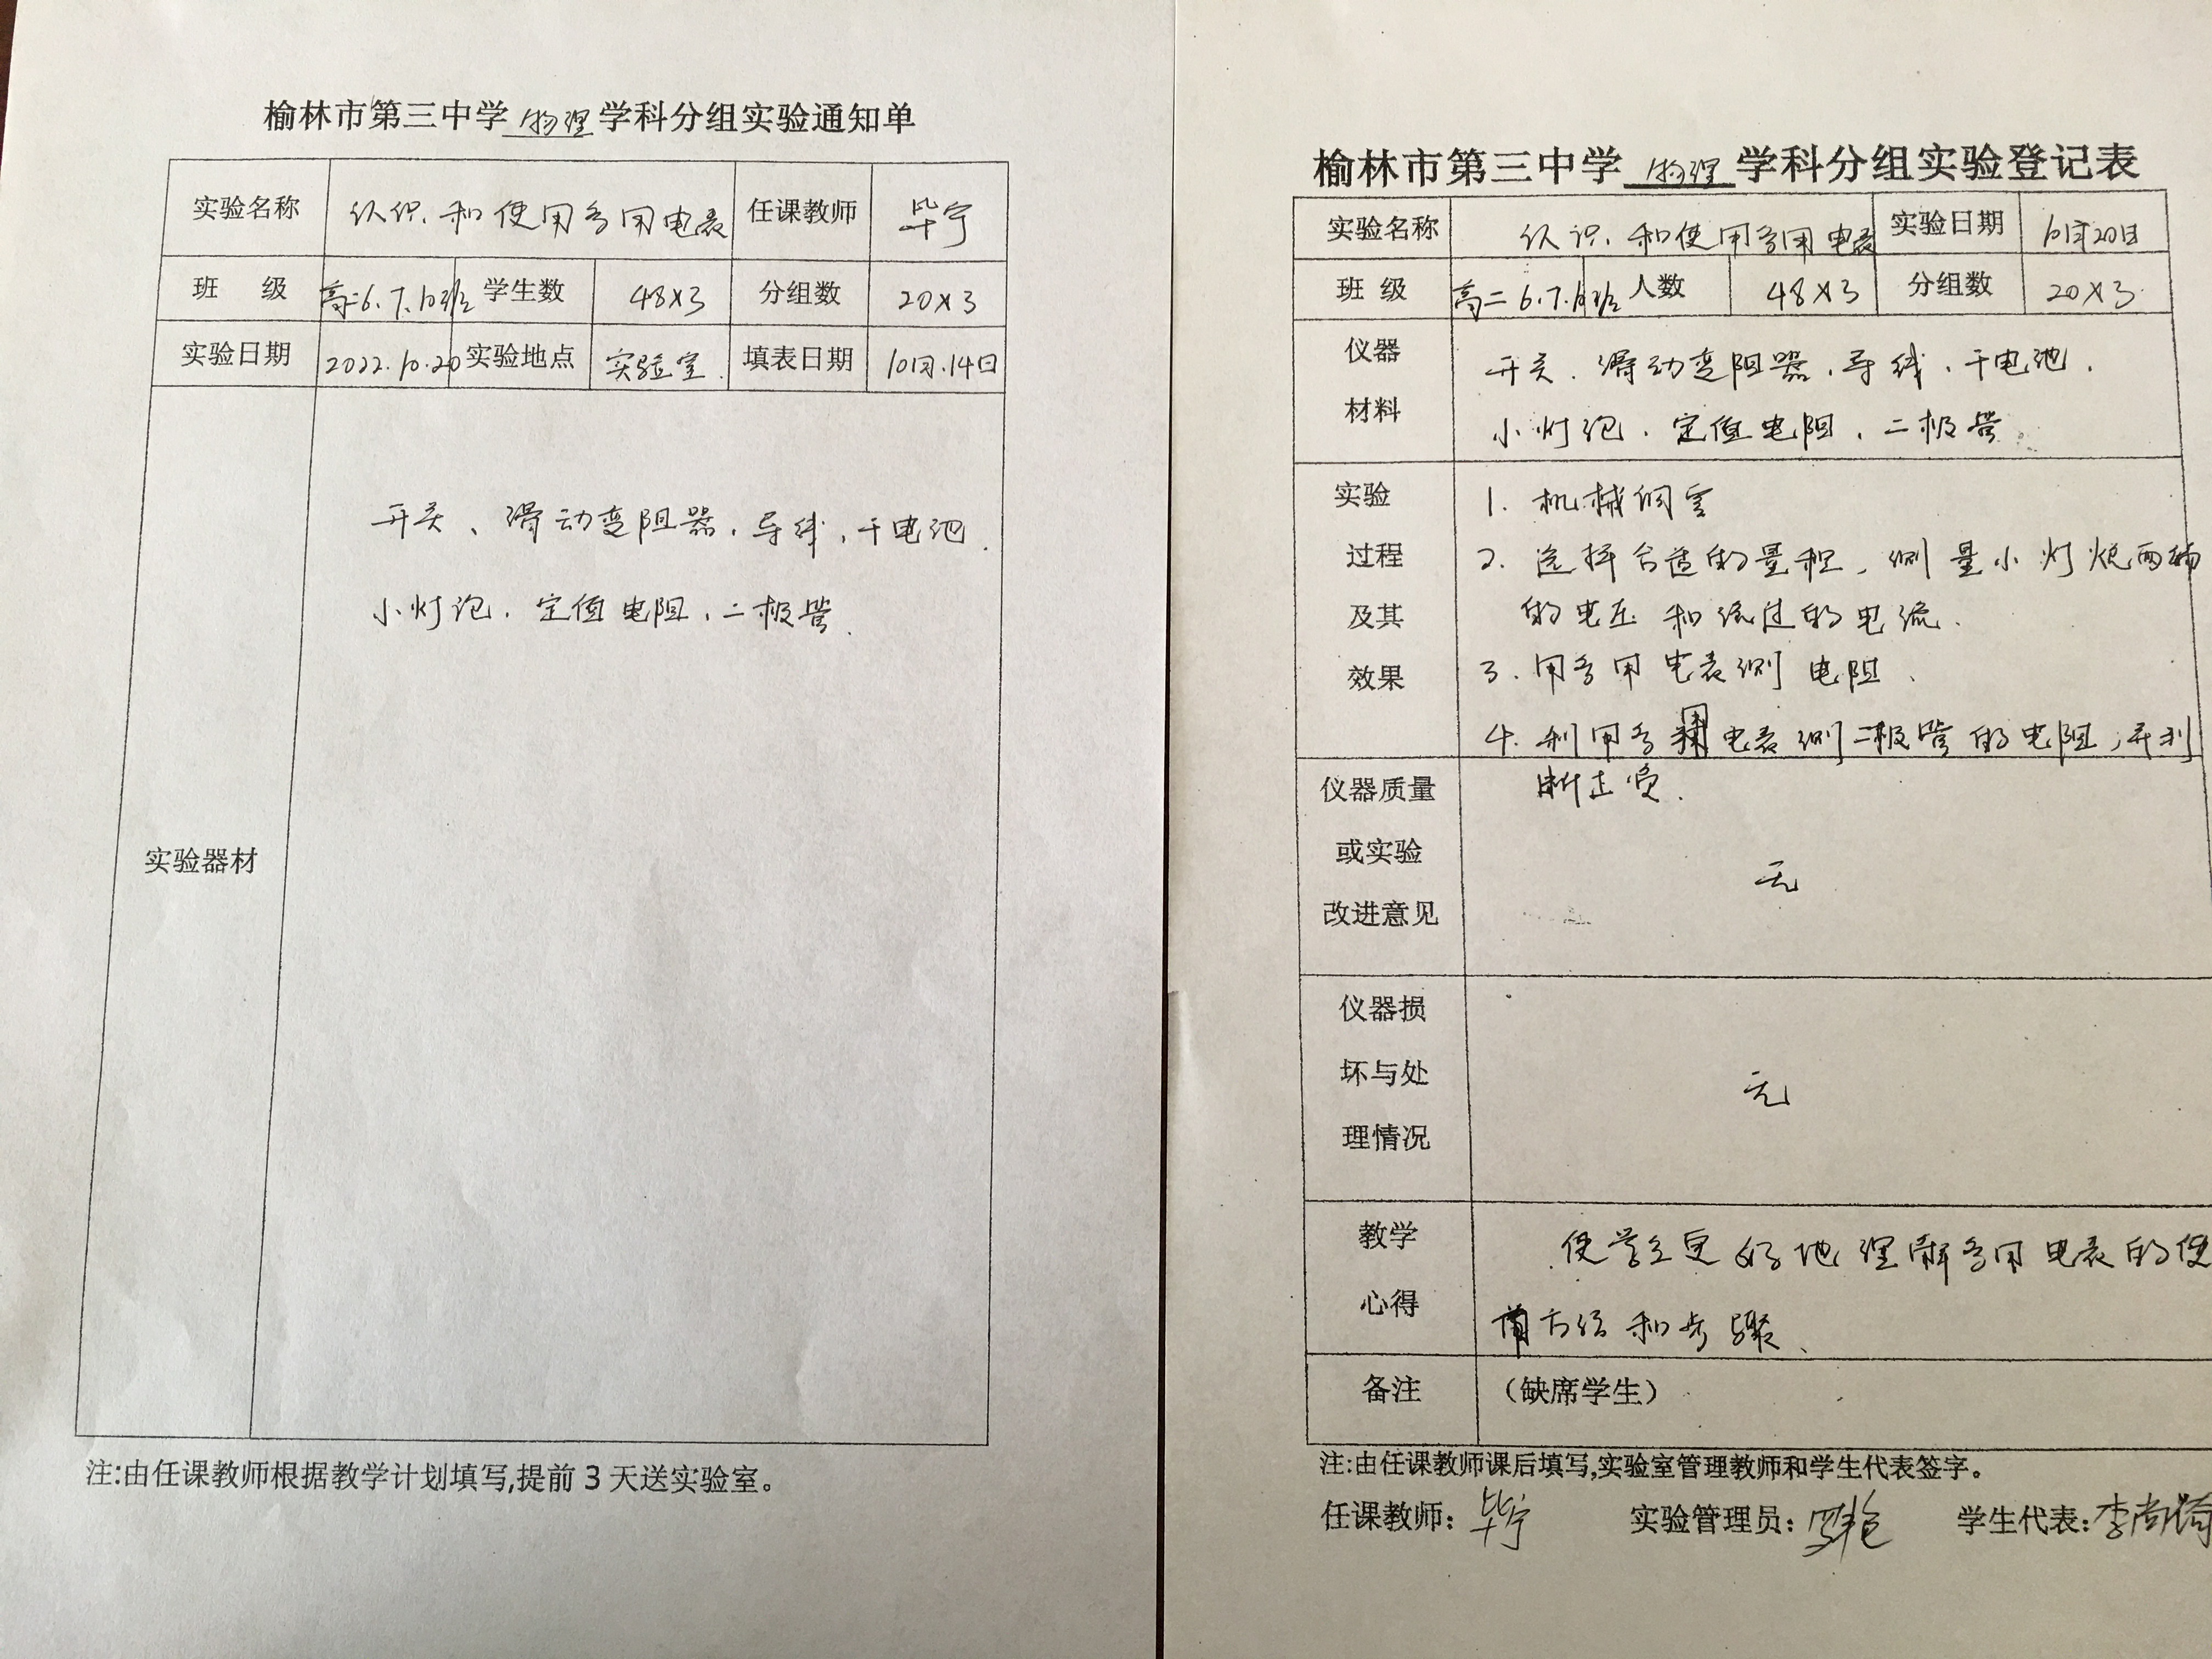 榆林市第三中学 物理 学科分组实验通知单
实验名称 认识和使用多用电表 任课教师 毕宁
班 级 高二6.7.10班 学生数 48×3 分组数 20×3
实验日期 2022.10.20 实验地点 实验室. 填表日期 10月.14日
开关、滑动变阻器.导线,干电池.
小灯泡.定值电阻.二极管.
实验器材
注:由任课教师根据教学计划填写,提前3天送实验室。
榆林市第三中学 物理 学科分组实验登记表
实验名称 认识.和使用多用电表 实验日期 10月20日
班 级 高二6.7.10班 人数 48×3 分组数 20×3.
仪器 开关.滑动变阻器.导线.干电池.
材料 小灯泡.定值电阻.二极管
实验 1. 机械调零
过程 2. 选择合适的量程,测量小灯泡两端
及其 的电压和流过的电流.
效果 3. 用多用电表测电阻.
4. 利用多用电表测二极管的电阻,并判
断正负.
仪器质量
或实验 无
改进意见
仪器损
坏与处 无
理情况
教学 使学生更好地理解多用电表的使
心得 用方法和步骤.
备注 (缺席学生)
注:由任课教师课后填写,实验室管理教师和学生代表签字。
任课教师: 毕宁 实验管理员: 学生代表: 李尚